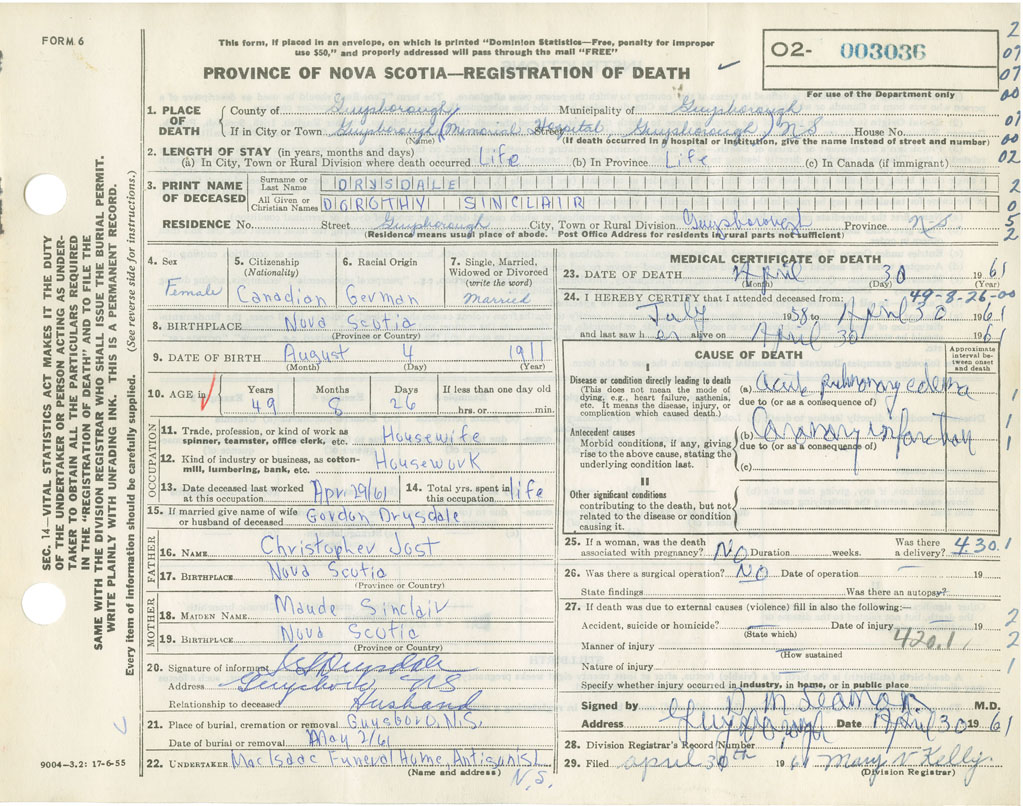 FORM 6
This form, if placed in an envelope, on which is printed "Dominion Statistics—Free, penalty for improper
use $50," and properly addressed will pass through the mail "FREE"
PROVINCE OF NOVA SCOTIA—REGISTRATION OF DEATH
O2- 003036
For use of the Department only
2
07
07
00
07
00
02
2
0
5
2
1. PLACE OF DEATH
County of Guysborough Municipality of Guysborough
If in City or Town Guysborough (Memorial Hospital, Guysborough) N-S Street House No.
(Name) (If death occurred in a hospital or institution, give the name instead of street and number)
2. LENGTH OF STAY (in years, months and days)
(a) In City, Town or Rural Division where death occurred Life (b) In Province Life (c) In Canada (if immigrant)
3. PRINT NAME OF DECEASED
Surname or Last Name DRYSDALE
All Given or Christian Names DOROTHY SINCLAIR
RESIDENCE No. Street Guysborough City, Town or Rural Division Guysborough Province N-S.
(Residence means usual place of abode. Post Office Address for residents in rural parts not sufficient)
4. Sex Female
5. Citizenship (Nationality) Canadian
6. Racial Origin German
7. Single, Married, Widowed or Divorced (write the word) Married
8. BIRTHPLACE Nova Scotia
(Province or Country)
9. DATE OF BIRTH August 4 1911
(Month) (Day) (Year)
10. AGE in Years 49 Months 8 Days 26 If less than one day old hrs. or min.
OCCUPATION
11. Trade, profession, or kind of work as spinner, teamster, office clerk, etc. Housewife
12. Kind of industry or business, as cotton-mill, lumbering, bank, etc. Housework
13. Date deceased last worked at this occupation Apr. 29/61 14. Total yrs. spent in this occupation life
15. If married give name of wife or husband of deceased Gordon Drysdale
FATHER
16. NAME Christopher Jost
17. BIRTHPLACE Nova Scotia
(Province or Country)
MOTHER
18. MAIDEN NAME Maude Sinclair
19. BIRTHPLACE Nova Scotia
(Province or Country)
20. Signature of informant Drysdale
Address NS
Relationship to deceased Husband
21. Place of burial, cremation or removal Guysboro, N.S.
Date of burial or removal May 2/61
22. UNDERTAKER MacIsaac Funeral Home, Antigonish
(Name and address) N.S.
MEDICAL CERTIFICATE OF DEATH
23. DATE OF DEATH April 30 1961
(Month) (Day) (Year)
24. I HEREBY CERTIFY that I attended deceased from: 49-8-26-00
July 1958 to April 30 1961
and last saw her alive on April 30 1961
CAUSE OF DEATH
Approximate interval between onset and death
I
Disease or condition directly leading to death
(This does not mean the mode of dying, e.g., heart failure, asthenia, etc. It means the disease, injury, or complication which caused death.)
(a) Acute pulmonary edema
due to (or as a consequence of)
Antecedent causes
Morbid conditions, if any, giving rise to the above cause, stating the underlying condition last.
(b) Coronary infarction
due to (or as a consequence of)
(c)
II
Other significant conditions
contributing to the death, but not related to the disease or condition causing it.
1
1
1
25. If a woman, was the death associated with pregnancy? NO Duration weeks. Was there a delivery? 430.1
26. Was there a surgical operation? NO Date of operation 19
State findings Was there an autopsy?
27. If death was due to external causes (violence) fill in also the following:—
Accident, suicide or homicide? Date of injury 19 2
(State which)
Manner of injury 420.1 2
(How sustained
Nature of injury 1
Specify whether injury occurred in industry, in home, or in public place
Signed by M.D.
Address Date April 30 1961
28. Division Registrar's Record Number
29. Filed april 30th 1961 Mary V Kelly.
(Division Registrar)
SEC. 14—VITAL STATISTICS ACT MAKES IT THE DUTY
OF THE UNDERTAKER OR PERSON ACTING AS UNDER-
TAKER TO OBTAIN ALL THE PARTICULARS REQUIRED
IN THE "REGISTRATION OF DEATH" AND TO FILE THE
SAME WITH THE DIVISION REGISTRAR WHO SHALL ISSUE THE BURIAL PERMIT.
WRITE PLAINLY WITH UNFADING INK. THIS IS A PERMANENT RECORD.
Every item of information should be carefully supplied. (See reverse side for instructions.)
9004-3.2: 17-6-55